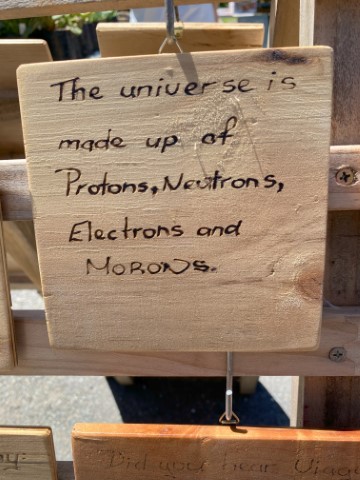 The universe is
made up of
Protons, Neutrons,
Electrons and
MORONS.
Did you hear